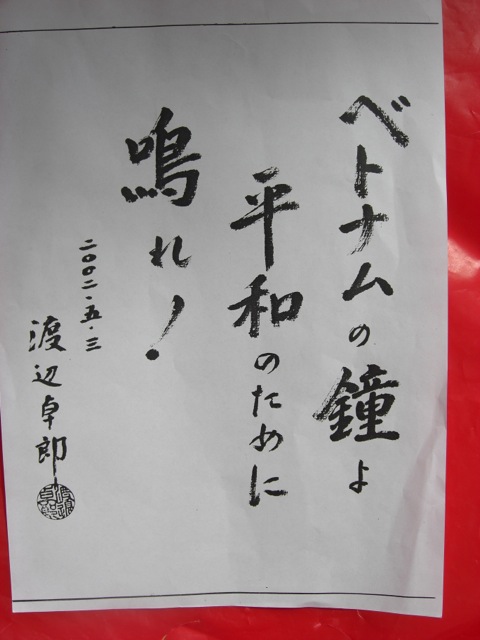 ベトナムの鐘よ
平和のために
鳴れ!
二〇〇二・五・三
渡辺卓郎